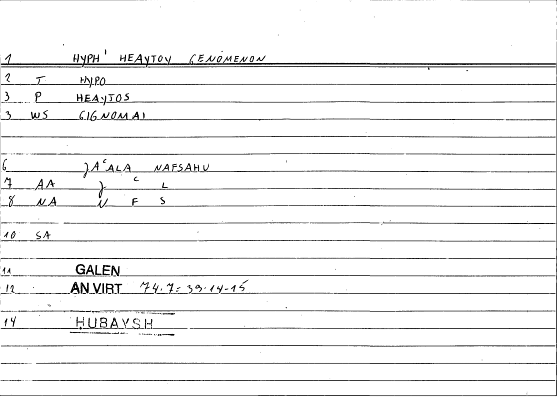 1 HYPH' HEAYTOY GENOMENON
2 T HYPO
3 P HEAYTOS
3 WS GIGNOMAI
6 JAᶜALA NAFSAHU
7 AA J ᶜ L
8 NA N F S
10 SA
11 GALEN
12 AN VIRT 74.7: 39.14-15
14 HUBAYSH